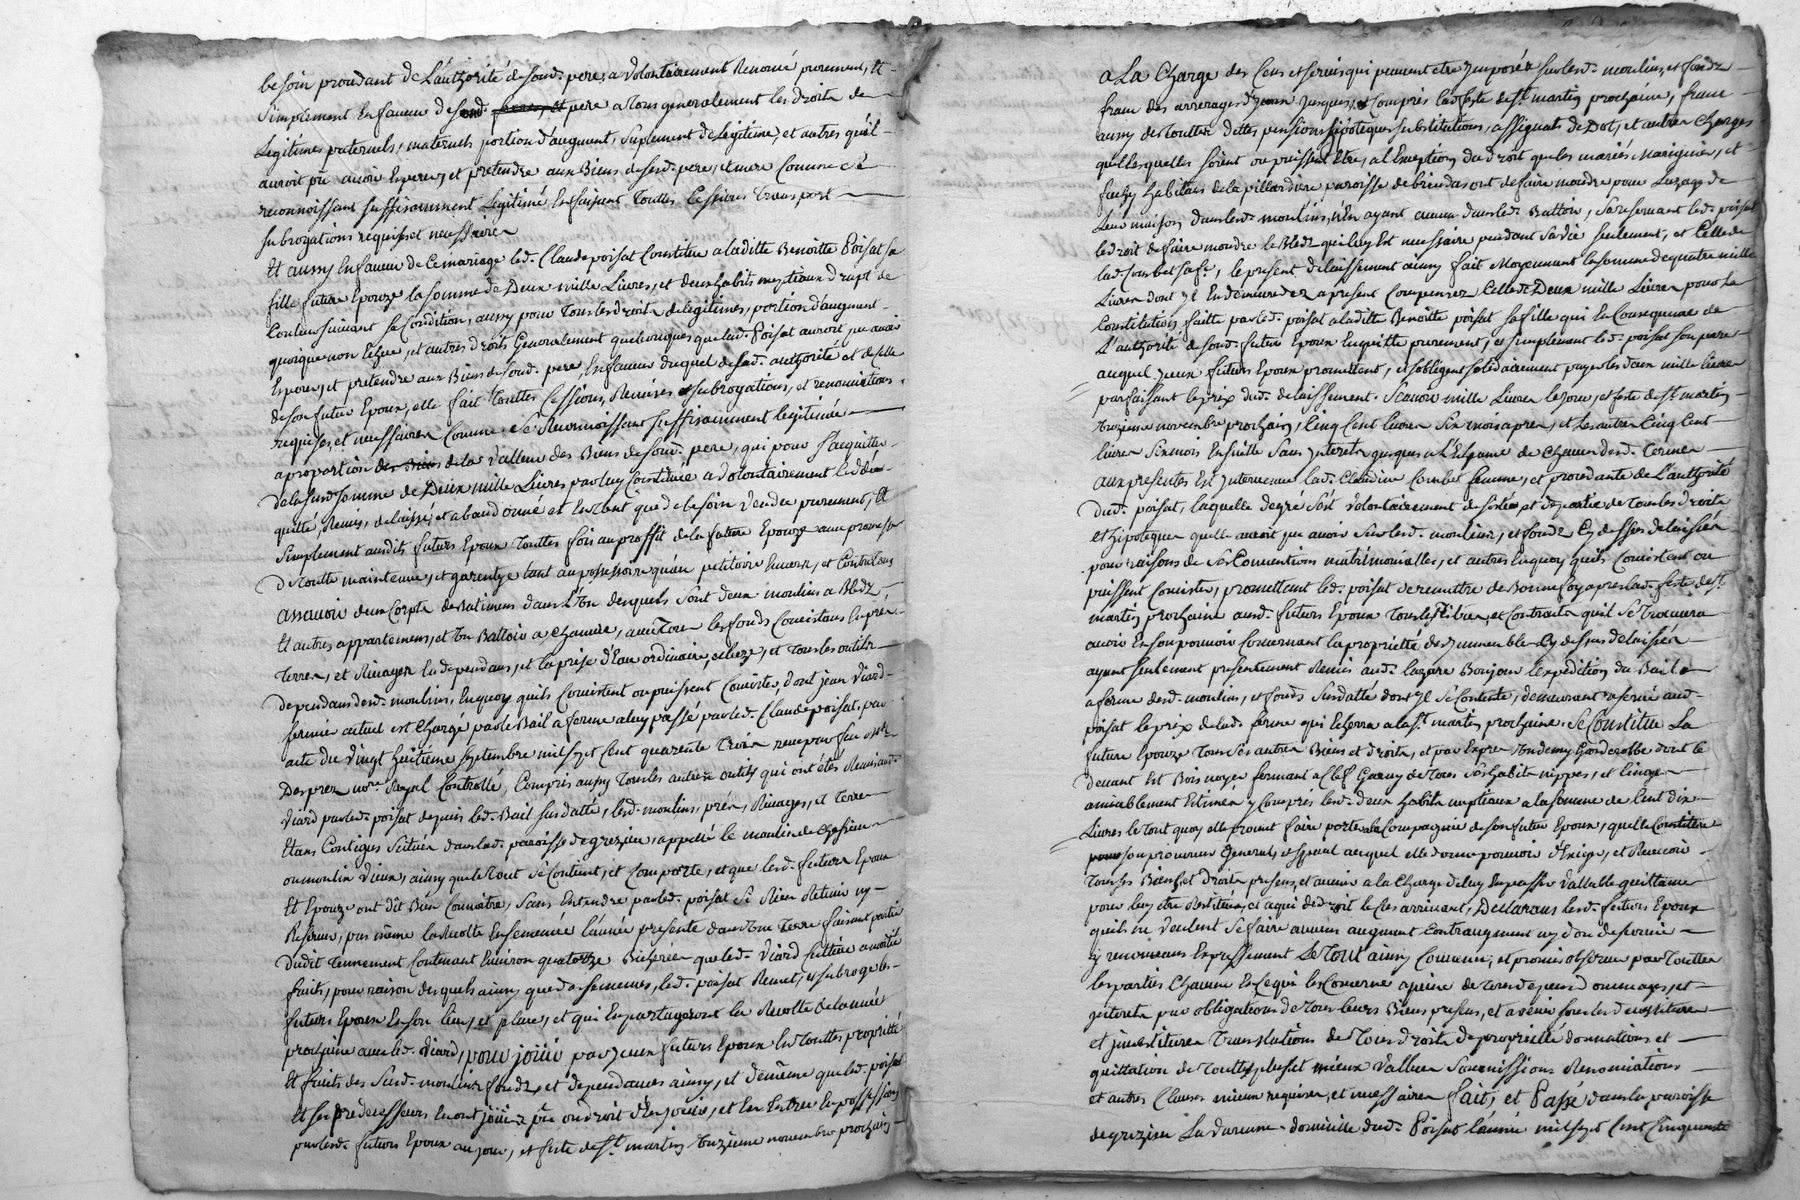 besoin procedant de L'authorité de sond. pere, a volontairement Renoncé purement, Et
simplement En faveur de sond. pere a tous generalement les droits de
Legitimes paternels, maternels portion d'augment, suplement de Legitime, et autres qu'il
auroit pu avoir Esperer, et pretendre aux Biens desesd. pere, et mere Comme se
reconnoissant suffisamment Legitimé En faisant Touttes Cessions Transport
subrogations requises et necessaires
Et aussy En faveur de Ce mariage led. Claude poisat Constitue a laditte Benoitte Poisat sa
fille future Epouze la somme de Deux mille Livres, et deux habits nuptiaux drapt de
Couleur suivant sa Condition, aussy pour Tous les droits de legitimes, portion d'augment
quoique non Echue, et autres droits Generalement quelconques que lad. Poisat auroit pu avoir
Esperer, et pretendre aux Biens de sond. pere, En faveur duquel de sad. authorité et de celle
de son futur Epoux, elle fait Touttes Cessions, Remises subrogations, et renonciations
requises, et necessaires Comme se Reconnoissant suffisamment legitimée
a proportion de la Valleur des Biens de sond. pere, qui pour s'acquitter
de lasusd. somme de Deux mille Livres par luy Constituée a volontairement cedé
quitté, Remis, delaissé, et abandonné et En tant que de besoin Vendu purement, Et
simplement ausdits futurs Epoux Touttes fois au proffit de la future Epouze avec promesse
de Toutte maintenue, et garentye tant au possessoire qu'au petitoire Envers, et Contre Tous
assavoir deux Corps de Batimens dans L'Un desquels sont deux moulins a Bled,
Et autres appartemens, et Un Battoir a Chanvre, avec Tous les fonds Consistans En prés
Terres, et Rivages En dependans, et la prise d'Eau ordinaire, ecluze, et Tous les outils
dependans desd. moulins, En quoy quils Consistent ou puissent Consister, dont jean Viard
fermier actuel est Chargé par le Bail a ferme a luy passé par led. Claude poisat, par
acte du Vingt huitième septembre mil sept Cent quarante Trois receu par feu me
Desprez no.re Royal Controllé, Compris aussy Tous les autres outils qui ont étés Remis aud.
Viard par led. poisat depuis led. Bail susdatté, lesd. moulins, prés, Rivages, et Terre
Etans Contigus Situés dans lad. paroisse de grezieu, appellé le moulin de
ou moulin Vieux, ainsy que le Tout se Contient, et Comporte, et que lesd. futurs Epoux
Et Epouze ont dit Bien Connoitre, sans En tendre par led. poisat se Rien Retenir ny
Reserver, pas même la Recolte Ensemencée l'année presente dans Une Terre faisant partie
dudit Tennement Contenant Environ quatorze Bicherées que led. Viard Cultive a moitié
fruits, pour raison desquels ainsy que des semences, led. poisat Remet, et subroge les
futurs Epoux En son lieu, et place, et qui En partageront la Recolte de l'année
prochaine avec led. Viard, pour joüir par yceux futurs Epoux En Touttes proprieté
Et fruits des susd. moulins fonds, et dependances ainsy, et de même que led. poisat
Et ses predecesseurs En ont joüi pu ou droit d'En jouir, et les Entrer En possession
par lesd. futurs Epoux au jour, et feste de St. martin onzieme novembre prochain
a La Charge des Cens et servis qui peuvent etre Imposés sur lesd. moulins, et fonds
franc des arrerages d'yceux jusques, et Compris lad. feste de St. martin prochaine, franc
aussy de Touttes dettes pensions hipoteques substitutions, assignats de Dot, et autres Charges
quelles quelles soient ou puissent Etre, a l'Exception du droit que les mariés Marignier, et
habitans de la pillardiere paroisse de brindas ont de faire moudre pour L'uzage de
Leur maison dans lesd. moulins, n'En ayant aucun dans led. Battoir, se reservant led. poisat
le droit de faire moudre le Bled qui luy Est necessaire pendant sa Vie seulement, et Celle de
lad. Combet sa fe., le present delaissement ainsy fait Moyennant la somme de quatre mille
Livres dont Il En demeure des a present Compensez Celle de Deux mille Livres pour la
Constitution faitte par led. poisat a laditte Benoitte poisat sa fille qui En Consequence de
L'authorité de sond. futur Epoux En quitte purement, et simplement led. poisat son pere
auquel yceux futurs Epoux promettent, et sobligent solidairement payer les deux mille livres
parfaisant le prix dud. delaissement. Scavoir mille Livres le jour, et feste de St. martin
onzieme novembre prochain, Cinq Cent livres Six mois apres, et Les autres Cinq Cent
livres Six mois En suitte Sans Interets jusques a L'Echeance de Chacun desd. Termes
aux presentes Est Intervenue lad. Claudine Combet femme, et procedante de L'authorité
dud. poisat, laquelle de gré s'est volontairement desistée et departie de Tous les droits
et hipoteques quelle auroit pu avoir sur lesd. moulins, et fonds Cy dessus delaissés
pour raisons de ses Conventions matrimonialles, et autres En quoy quils Consistent ou
puissent Consister, promettant led. poisat de remettre de Bonne foy apres lad. feste de St.
martin prochaine ausd. futurs Epoux Tous les Titres, et Contrats quil se Trouvera
avoir En son pouvoir Concernant la proprietté des Immeubles Cy dessus delaissés
ayant seulement presentement Remis aud. Lazare Bonjour l'expédition du Bail a
ferme desd. moulins, et fonds susdatté dont Il se Contente, demeurant reservé aud.
poisat le prix de lad. ferme qui Echerra a la St. martin prochaine. Se Constitue La
future Epouze Tous ses autres Biens et droits, et par Expres Un demy Garderobbe dont le
devant Est Bois noyer fermant a Clef Garny de Tous ses habits nippes, et linges
amiablement Estimés y Compris lesd. deux habits nuptiaux a la somme de Cent dix
Livres le Tout quoy elle promet faire porter En la Compagnie de son futur Epoux, quelle Constitue
son procureur General, et special auquel elle donne pouvoir d'Exiger, et Recevoir
Tous ses Biens, et droits presens, et avenir a la Charge de luy En passer Vallable quittance
pour luy etre Restitués, et a qui de droit le Cas arrivant, Declarans lesd. futurs Epoux
quils ne Veulent se faire aucuns augment Contraugment ny don de survie
y renoncans Expressement Le Tout ainsy Convenu, et promis observer par Touttes
les parties Chacune En Ce qui les Concerne a peine de Tous depens dommages, et
interets par obligations de Tous leurs Biens presens, et avenir sous les devestiture
et jnvestitures Translations de Tous droits de proprieté donnations et
quittation de Touttes plus et mieux Vallues Soumissions Renonciations
et autres Clauses mieux requises, et necessaires fait, et Passé dans la paroisse
de grezieu La Varenne domicille dud. Poisat l'année mil sept Cent Cinquante